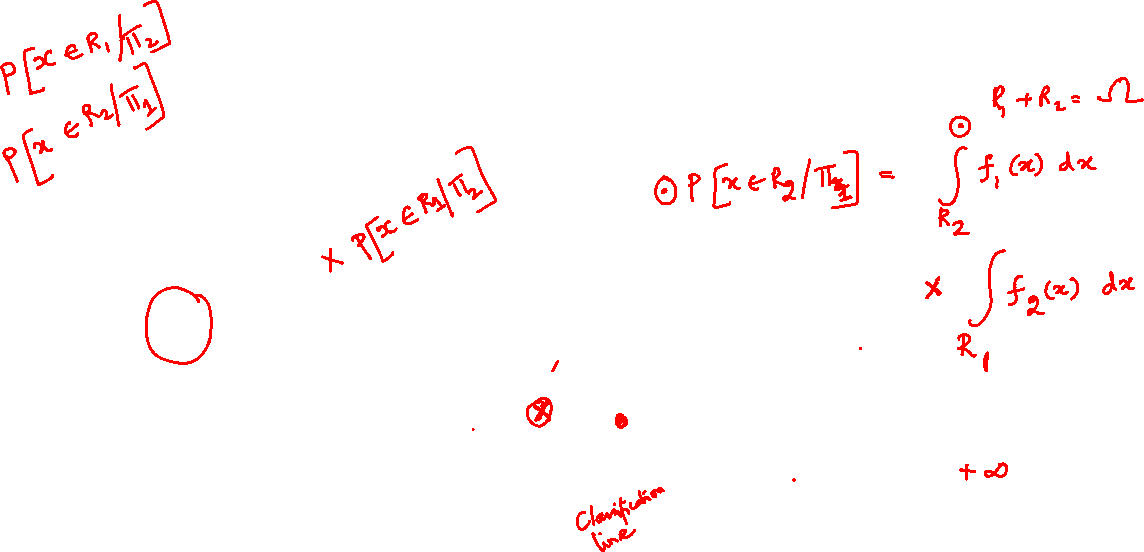 P[x ∈ R₁/π₂]
P[x ∈ R₂/π₁]
R₁ + R₂ = Ω
⊙ P[x ∈ R₂/π₁] = ⊙ ∫_{R₂} f₁(x) dx
× P[x ∈ R₁/π₂]
× ∫_{R₁} f₂(x) dx
+∞
Classification
line